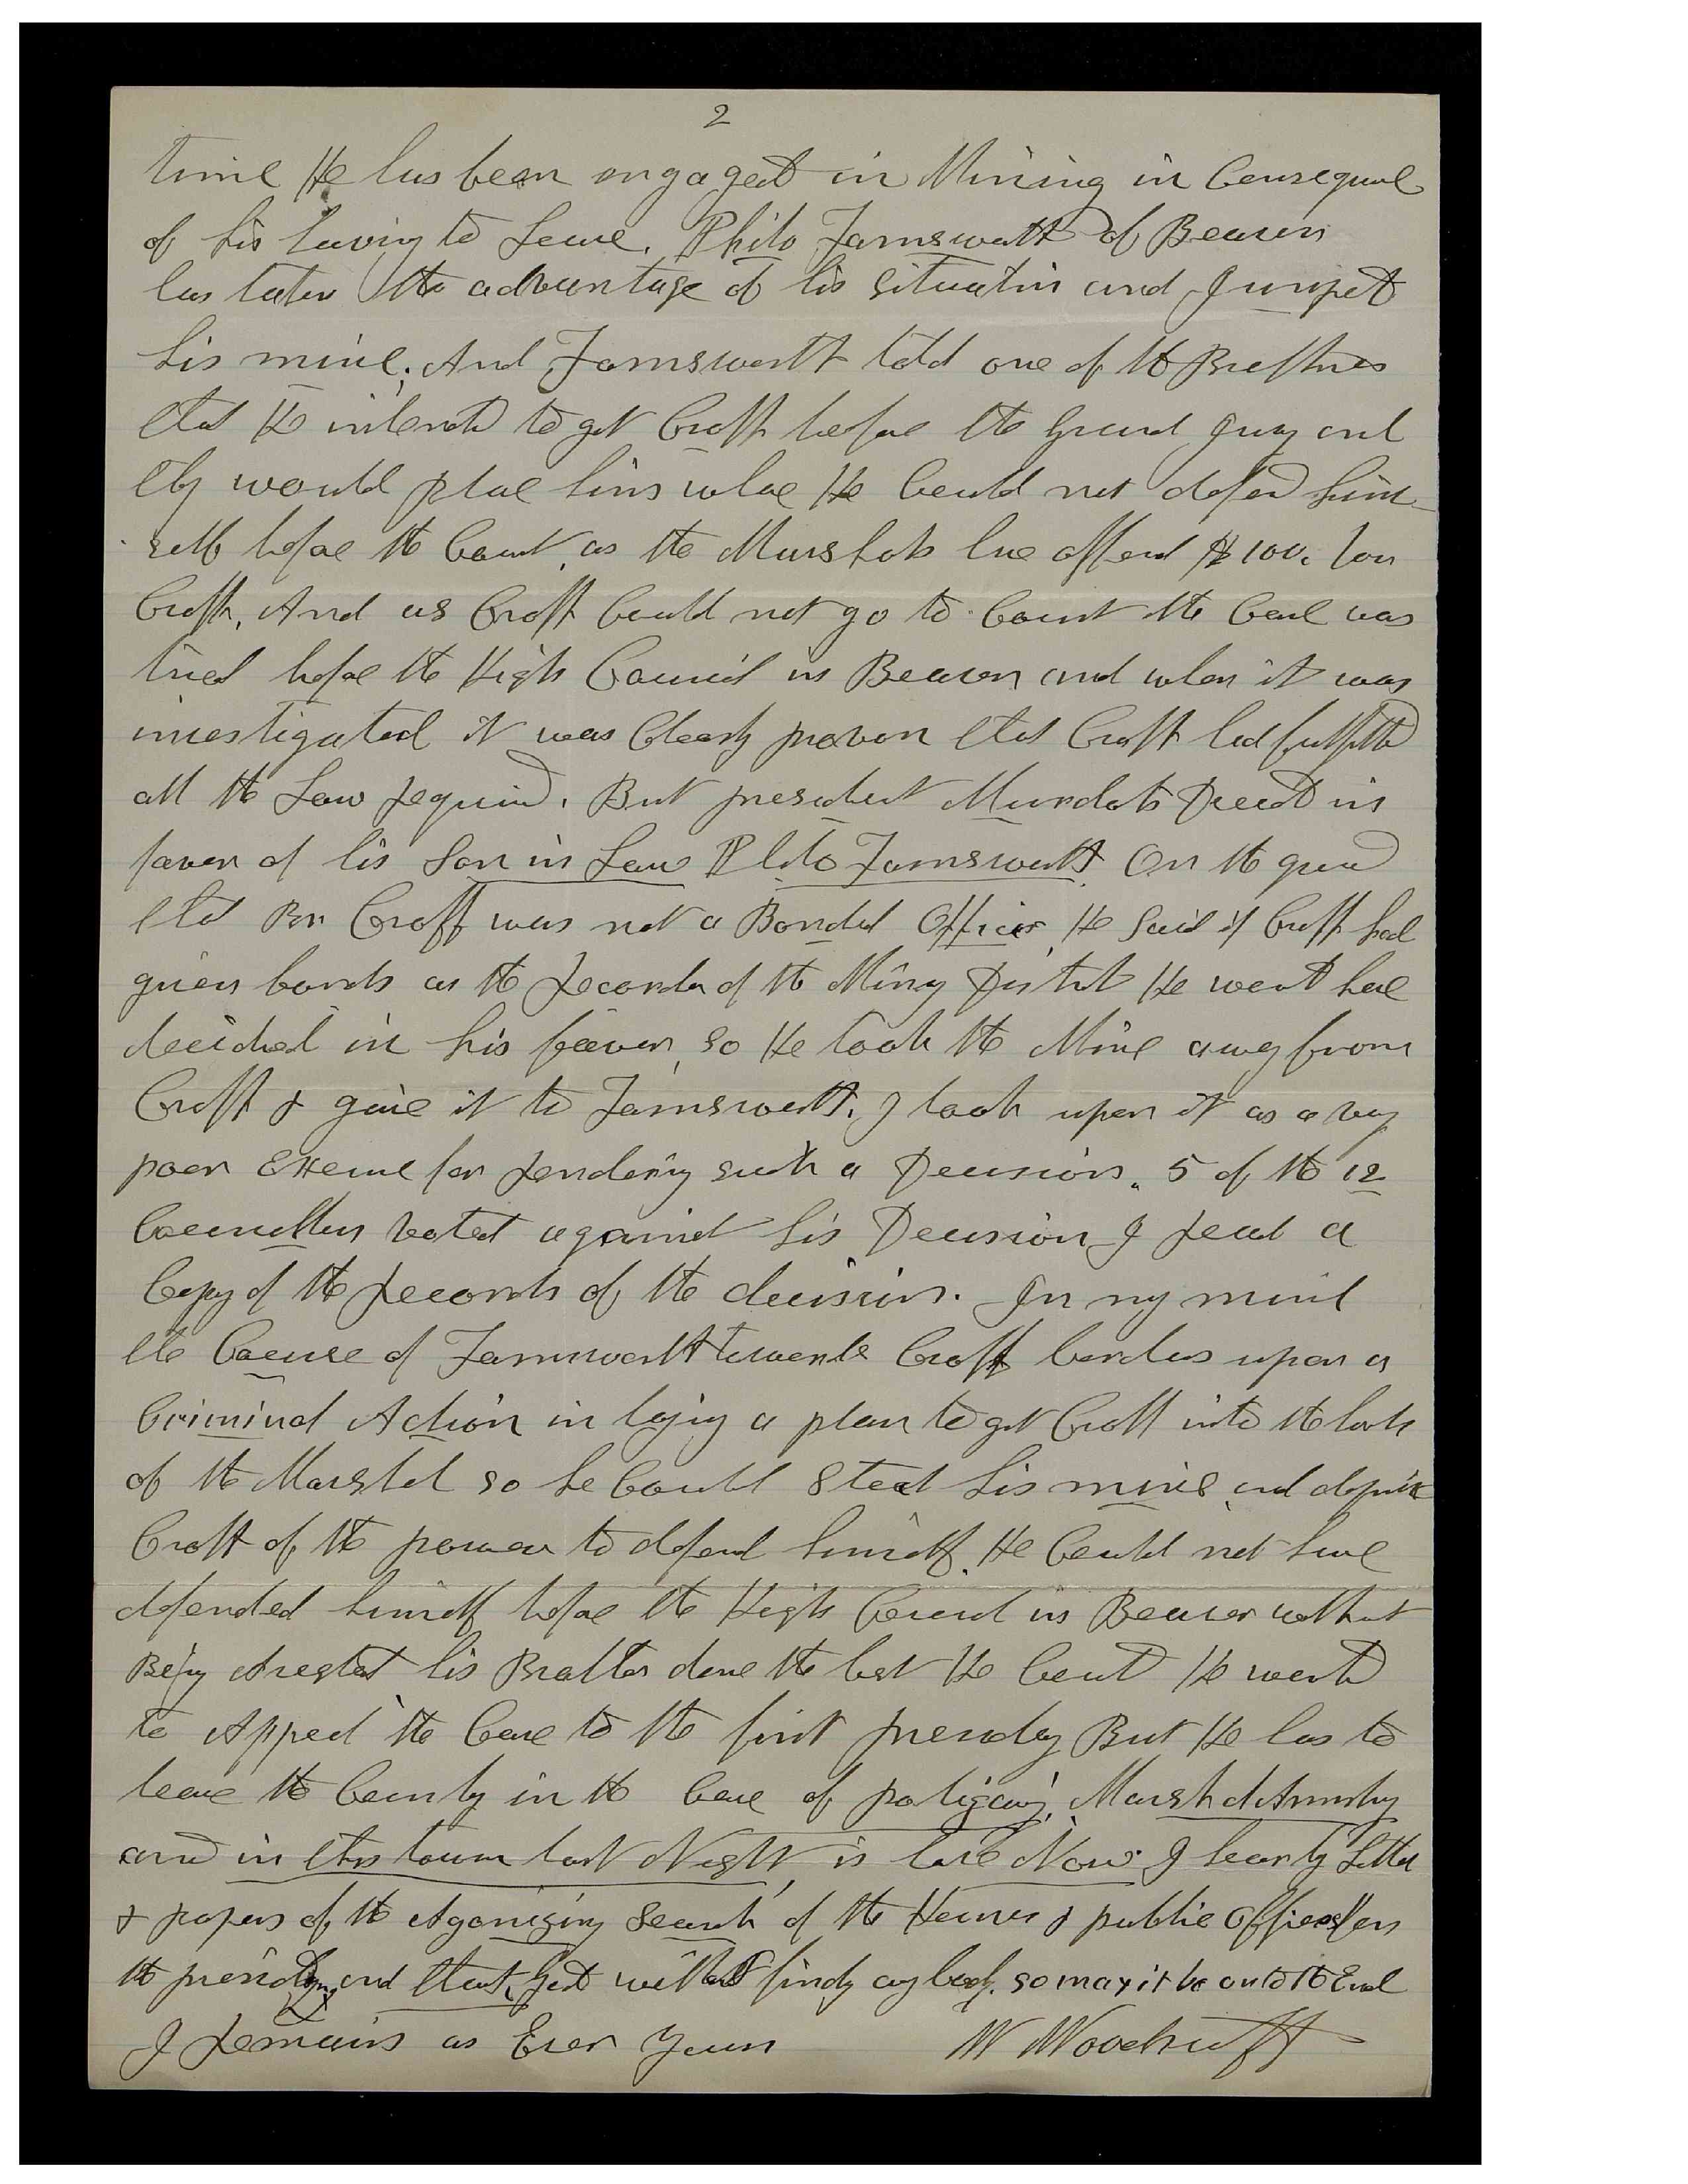 2
time He has been engaged in Mining in Consequence
of his having to Leave. Philo Farnsworth of Beaver
has taken the advantage of his situation and Jumped
his mine, And Farnsworth told one of the Brethren
that He intended to get Croff before the Grand Jury and
they would place him whare He Could not defend him-
self before the Court, as the Marshals have offered $100. for
Croff, And as Croff Could not go to Court the Case was
tried before the High Council in Beaver and when it was
investigated it was Clearly proven that Croff had fulfilled
all the Law required. But president Murdock Decided in
favor of his Son in Law Philo Farnsworth On the ground
that Br Croff was not a Bonded Officer He Said if Croff had
given bonds as the Recorder of the Mining District He would have
decided in his favor, so He took the Mine away from
Croff & gave it to Farnsworth. I look upon it as a very
poor Excuse for rendering such a Decision. 5 of the 12
Councillors voted against his Decision I read a
Copy of the records of the decision. In my mind
the Course of Farnsworth towards Croff borders upon a
Criminal Action in laying a plan to get Croff into the hands
of the Marshal so he Could Steal his mine and deprive
Croff of the power to defend himself. He Could not have
defended himself before the High Council in Beaver without
Being Arrested his Brother done the best He Could He wanted
to Appeal the Case to the first presidency But He has to
leave the County in the Case of poligamy. Marshal Armstrong
arived in this town last Night, is here Now. I hear by Letter
& papers of the Agonizing Search of the Houses & public Offices for
the presidency and that without finding any body. so may it be unto the End
I Remain as Ever Yours W Woodruff